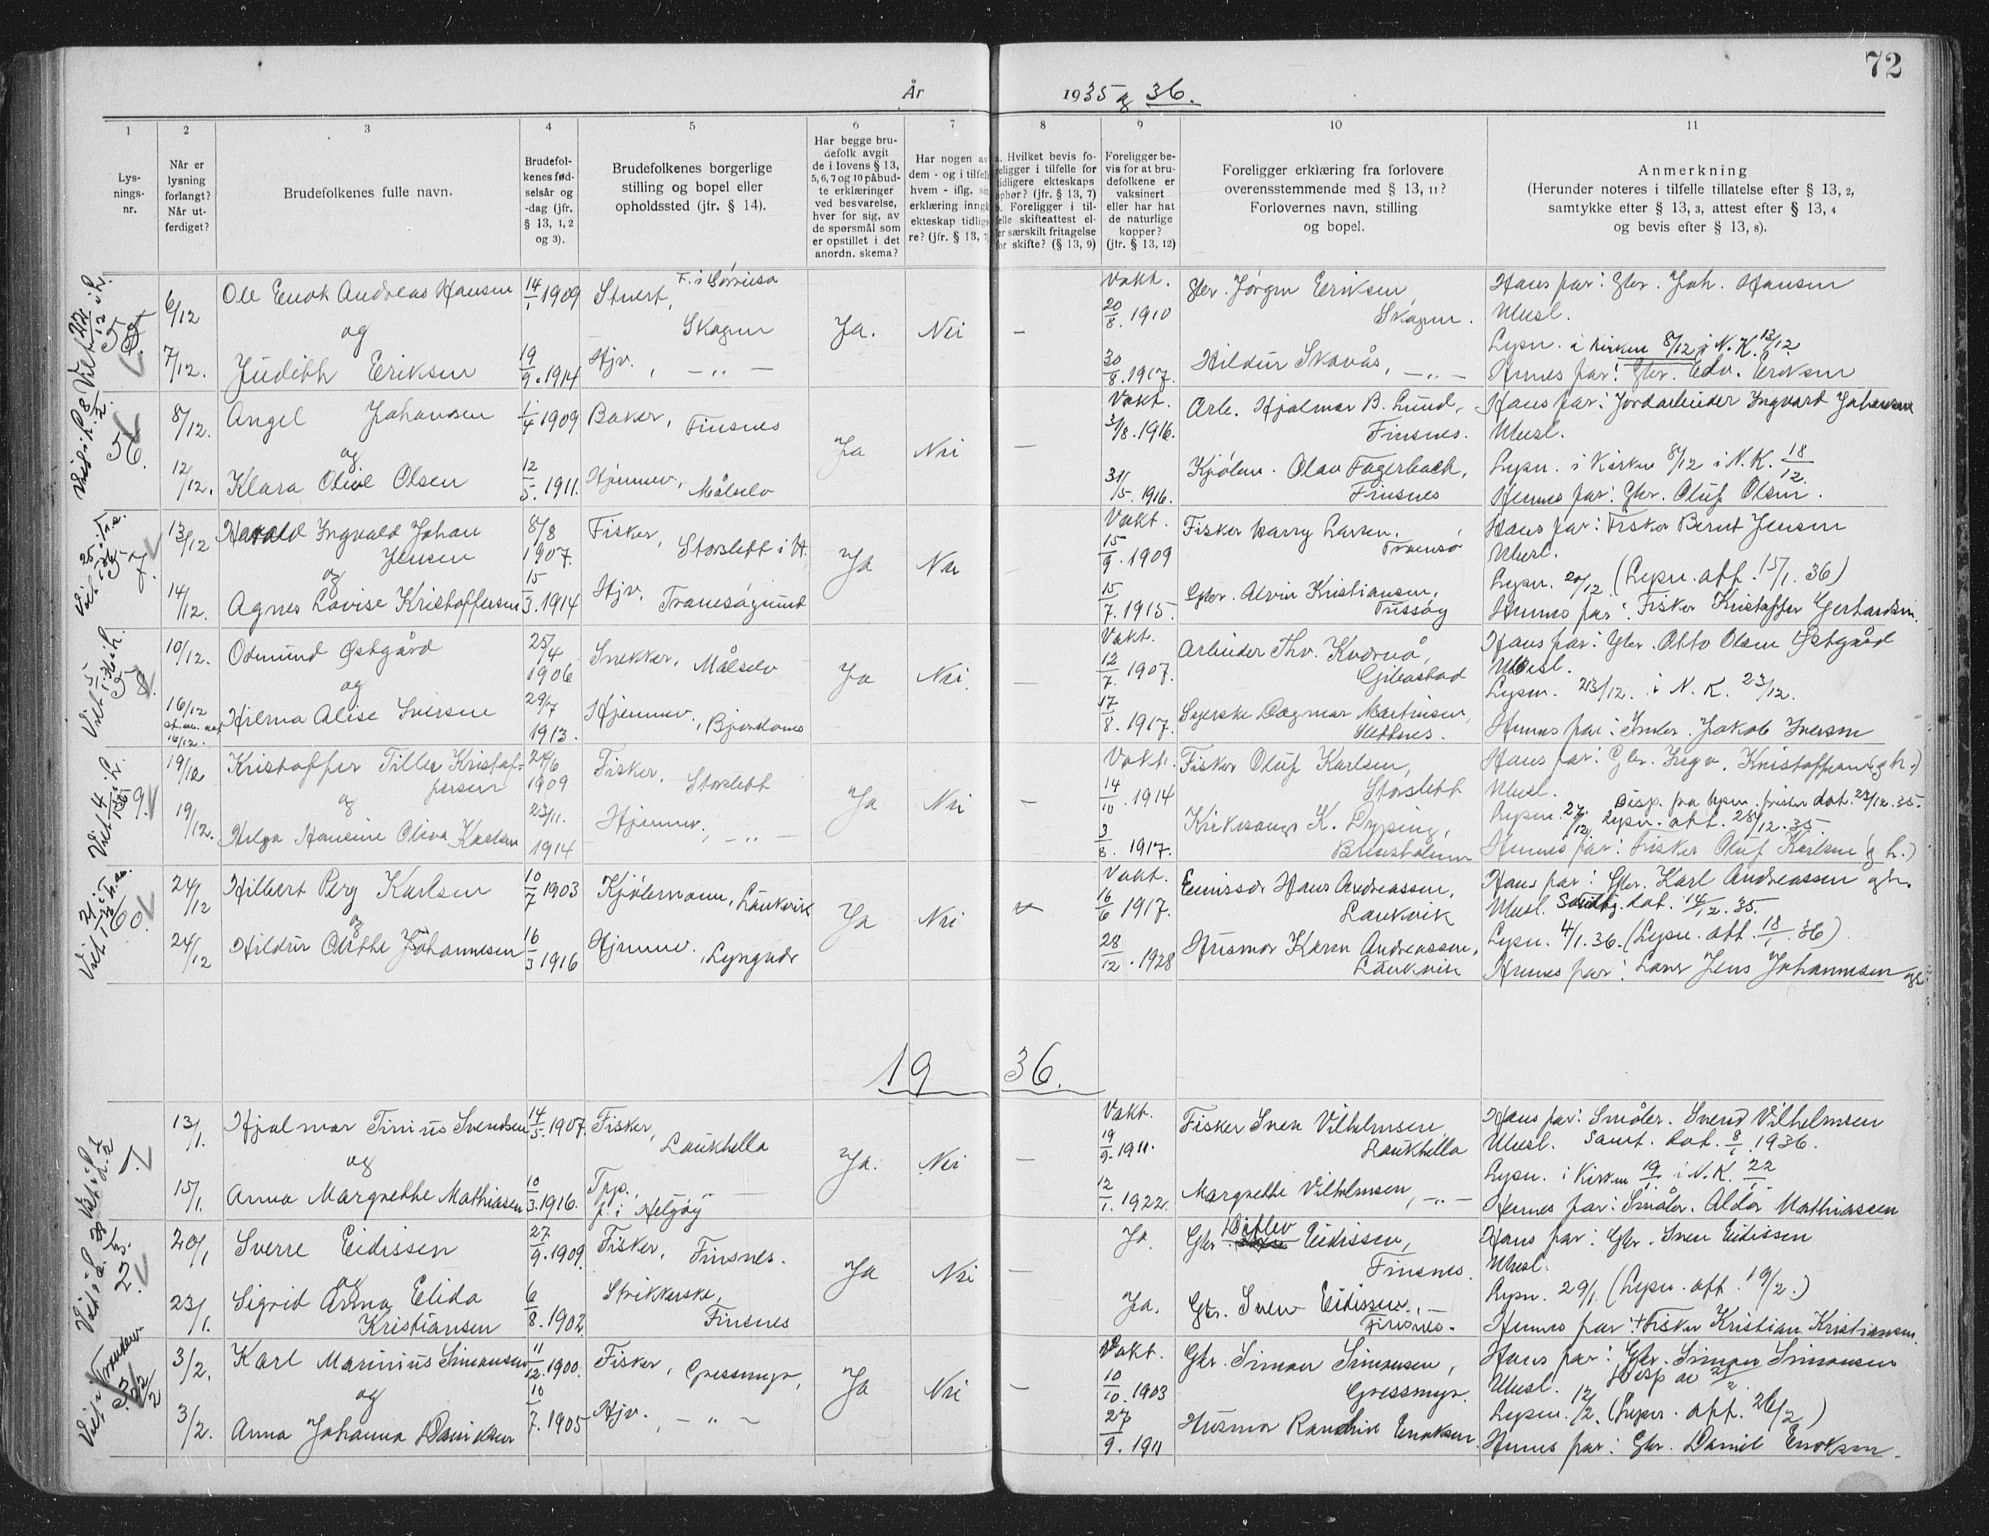 72
År 1935 og 36.
1 2 3 4 5 6 7 8 9 10 11
Lysnings-
nr.
Når er
lysning
forlangt?
Når ut-
ferdiget?
Brudefolkenes fulle navn.
Brudefol-
kenes fød-
selsår og
-dag (jfr.
§ 13, 1, 2
og 3).
Brudefolkenes borgerlige
stilling og bopel eller
opholdssted (jfr. § 14).
Har begge bru-
defolk avgit
de i lovens § 13,
5, 6, 7 og 10 påbud-
te erklæringer
ved besvarelse,
hver for sig, av
de spørsmål som
er opstillet i det
anordn. skema?
Har nogen av
dem - og i tilfelle
hvem - iflg. sin
erklæring inngått
ekteskap tidlige-
re? (jfr. § 13,
a. Hvilket bevis fo-
religger i tilfelle for
tidligere ekteskaps
ophør? (jfr. § 13, 7)
b. Foreligger i til-
felle skifteattest el-
ler særskilt fritagelse
for skifte? (§ 13, 9)
Foreligger be-
vis for at bru-
defolkene er
vaksinert
eller har hat
de naturlige
kopper?
(jfr. § 13, 12)
Foreligger erklæring fra forlovere
overensstemmende med § 13, 11?
Forlovernes navn, stilling
og bopel.
Anmerkning
(Herunder noteres i tilfelle tillatelse efter § 13, 2,
samtykke efter § 13, 3, attest efter § 13, 4
og bevis efter § 13, 8).
6/12 Ole Enok Andreas Hansen 14/1 1909 Stuert, F. i Sørreisa Vakt. Gbr. Jørgen Eriksen, Hans far: Gbr. Joh. Hansen
og Skogen Ja. Nei — 20/8. 1910 Skogen. Ulusl.
Lysn. i Kirken 8/12 i N. K. 12/12
7/12. Judith Eriksen 19/9. 1914 Hjv., — „ — 30/8. 1917. Hildur Skavås, — „ — Hennes far: Gbr. Edv. Eriksen
56. 8/12. Angel Johansen 1/4 1909 Baker, Finsnes Vakt. Arb. Hjalmar B. Lund, Hans far: Jordarbeider Ingvard Johansen
og Ja Nei — 3/8. 1916. Finsnes. Ulusl.
12/12. Klara Olive Olsen 12/5. 1911. Hjemmev., Målselv Kjølem. Olav Fagerbach, Lysn. i Kirken 8/12 i N. K. 18/12.
31/5. 1916. Finsnes Hennes far: Gbr. Oluf Olsen.
57. 13/12 Harald Ingvald Johan 8/8 Fisker, Storslett i Vakt. Fisker Harry Larsen, Hans far: Fisker Bernt Jensen
Jensen 1907. Ja Nei 15/9 1909 Tromsø Ulusl.
og Lysn. 20/12. (Lysn. att. 15/1. 36)
14/12. Agnes Lovise Kristoffersen 15/3. 1914 Hjv. Tranesøgrund 15/7. 1915. Gbr. Alvin Kristiansen, Tussøy Hennes far: Fisker Kristoffer Gerhardsen
58. 10/12. Odmund Østgård 25/4 1906 Snekker, Målselv Vakt. Arbeider Thv. Kvernå, Hans far: Gbr. Otto Olsen Østgård
og Ja Nei. 12/7. 1907. Gibostad Ulusl.
Lysn. 23/12. i N. K. 23/12.
16/12 Hilma Alise Iversen 29/7 1913. Hjemmev., 17/8. 1917. Syerske Dagmar Martinsen, Hennes far: Jakob Iversen
16/12.
59. 19/12 Kristoffer Tiller Kristof- 24/6 Fisker, Storslett Vakt. Fisker Oluf Karlsen, Hans far: Gbr. Ingv. Kristoffersen g h.)
fersen 1909 Ja Nei — 14/10. 1914 Storslett Ulusl. Disp. fra lysn. frister dat. 23/12. 35.
og Lysn. 27/12. Lysn. att. 28/12. 35.
19/12. Helga Hansine Oliva Karlsen 23/11. 1914 Hjemmev., — „ — 3/8. 1917. Kirkesanger K. Dyping, Brensholmen Hennes far: Fisker Oluf Karlsen (g h.)
60. 24/12 Hilbert Perg Karlsen 10/7 1903 Kjølemann, Laukvik Vakt. Emissær Hans Andreassen, Hans far: Gbr. Karl Andreassen gh.
og Ja Nei 16/6 1917. Laukvik Ulusl. dat. 14/12. 35.
24/12 Hildur Johannesen 16/3 1916 Hjemmev., Lyngeidr 28/12. 1928 Husmor Karen Andreassen, Laukvik Lysn. 4/1. 36. (Lysn. att. 18/1. 36)
Hennes far: Jens Johannesen gh
19 36.
1. 13/1. Hjalmar Tinius Svendsen 14/5. 1907. Fisker, Laukhella Vakt. Fisker Sven Vilhelmsen, Hans far: Småbr. Svend Vilhelmsen
og Ja. Nei — 19/9. 1911. Laukhella Ulusl. Samt. dat. 8/1. 1936.
Lysn. i Kirken 19/1. i N. K. 22/1.
15/1. Anna Margrethe Mathiasen 10/3. 1916. Tpp. f. i Helgøy 12/1. 1922. Margrethe Vilhelmsen, — „ — Hennes far: Småbr. Aldor Mathiassen
2. 20/1 Sverre Eidissen 27/9. 1909. Fisker, Finsnes. Ja. Gbr. Ditlev Eidissen, Hans far: Gbr. Sven Eidissen
og Ja Nei — Finsnes. Ulusl.
23/1. Sigrid Anna Elida 6/8. 1902 Strikkerske, Ja. Gbr. Sven Eidissen, Lysn. 29/1 (Lysn. att. 19/2.)
Kristiansen Finsnes Finsnes. Hennes far: † Fisker Kristian Kristiansen.
3. 3/2. Karl Marinius Simonsen 11/12. 1900. Fisker, Gressmyr, Vakt. Gbr. Simon Simonsen, Hans far: Gbr. Simon Simonsen
og Ja Nei — 10/10. 1903 Gressmyr. Ulusl. Disp
Lysn. 12/2. (Lysn. att. 26/2)
3/2. Anna Johanna Danielsen 10/7. 1905 Hjv. — „ — 27/9. 1911 Husmor Enoksen. Hennes far: Gbr. Daniel Enoksen.